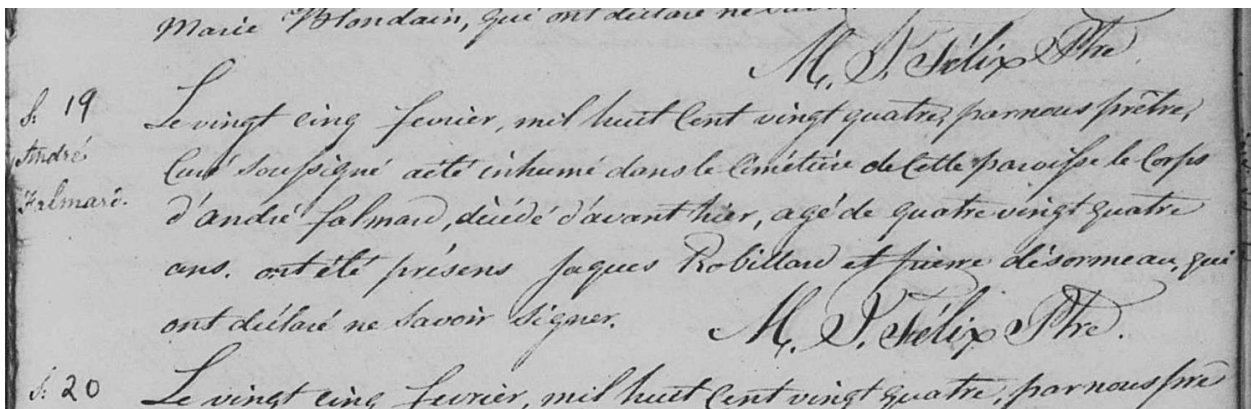 Marie Blondain, qui ont déclaré ne
M. J. Félix Ptre.
S. 19
André
Falmard.
Le vingt cinq fevrier, mil huit Cent vingt quatre, par nous prêtre,
Curé soussigné a été inhumé dans le Cimétière de Cette paroisse le Corps
d'andré falmard, décédé d'avant hier, agé de quatre vingt quatre
ans. ont été présens jaques Robillard et pierre désormeau, qui
ont déclaré ne Savoir Signer. M. J. Félix Ptre.
S. 20
Le vingt cinq fevrier, mil huit Cent vingt quatre, par nous ptre